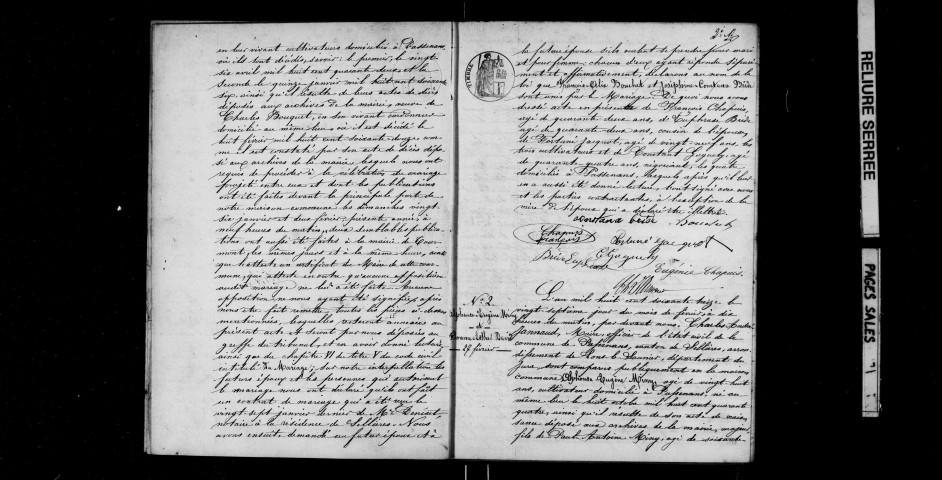 en leur vivant cultivateurs domiciliés à Passenans
où ils sont décédés, savoir : le premier, le vingt
six avril mil huit cent quarante deux, et la
seconde le quinze janvier mil huit cent soixante
six, ainsi qu'il résulte de leurs actes de décès
déposés aux archives de la mairie, veuve de
Charles Bouquet, en son vivant cordonnier
domicilié au même lieu, où il est décédé le
huit février mil huit cent soixante-douze, com
me il est constaté par son acte de décès dépo
sé aux archives de la mairie, lesquels nous ont
requis de procéder à la célébration du mariage
projeté entre eux et dont les publications
ont été faites devant la principale porte de
notre maison commune les dimanches vingt
six janvier et deux février, présent année, à
neuf heures du matin, deux semblables publica
tions ont aussi été faites à la mairie de
mont, les mêmes jours et à la même heure, ainsi
que l'atteste un certificat de Maire de cette com
mune, qui atteste en outre qu'aucune opposition
audit mariage ne lui a été faite. Aucune
opposition ne nous ayant été signifiée, après
nous être fait remettre toutes les pièces ci-dessus
mentionnées, lesquelles resteront annexées au
présent acte et seront par nous déposées au
greffe du tribunal, et en avoir donné lecture,
ainsi que du chapitre VI du titre V du code civil
intitulé Du Mariage ; sur notre interpellation les
futurs époux et les personnes qui autorisent
le mariage nous ont déclaré qu'ils ont fait
un contrat de mariage qui a été reçu le
vingt sept janvier dernier de Me
notaire à la résidence de Sellières. Nous
avons ensuite demandé au futur époux et à
la future épouse s'ils veulent se prendre pour mari
et pour femme, chacun d'eux ayant répondu séparé
ment et affirmativement, déclarons au nom de la
loi que et Joséphine
sont unis par le Mariage. De quoi nous avons
dressé acte en présence de François Chapuis,
agé de quarante deux ans, d'Euphrase Bride
agé de quarante-deux ans, cousin de l'épouse,
de Fortuné Jacquot, agé de vingt-neuf ans, les
trois cultivateurs et de Constant Goguely, agé
de quarante-quatre ans, négociant, les quatre
domiciliés à Passenans. Lesquels après qu'il leur
en a aussi été donné lecture, l'ont signé avec nous
et les parties contractantes, à l'exception de la
mère de l'époux qui a déclaré être illettrée.
Chapuis
François
Goguely
Eugénie Chapuis
No 2
27 février
L'an mil huit cent soixante treize le
vingt septième jour du mois de février, à dix
heures du matin, par devant nous, Charles
Jannaud, Maire, officier de l'état civil de la
commune de Passenans, canton de Sellières, arron
dissement de Lons-le-Saunier, département du
Jura, sont comparus publiquement en la maison
commune, Alphonse Eugène agé de vingt huit
ans, cultivateur, domicilié à Passenans, né au
même lieu le huit octobre mil huit cent quarante
quatre, ainsi qu'il résulte de son acte de nais
sance déposé aux archives de la mairie, majeur
fils de Paul Antoine agé de soixante
RELIURE SERREE
PAGES SALES